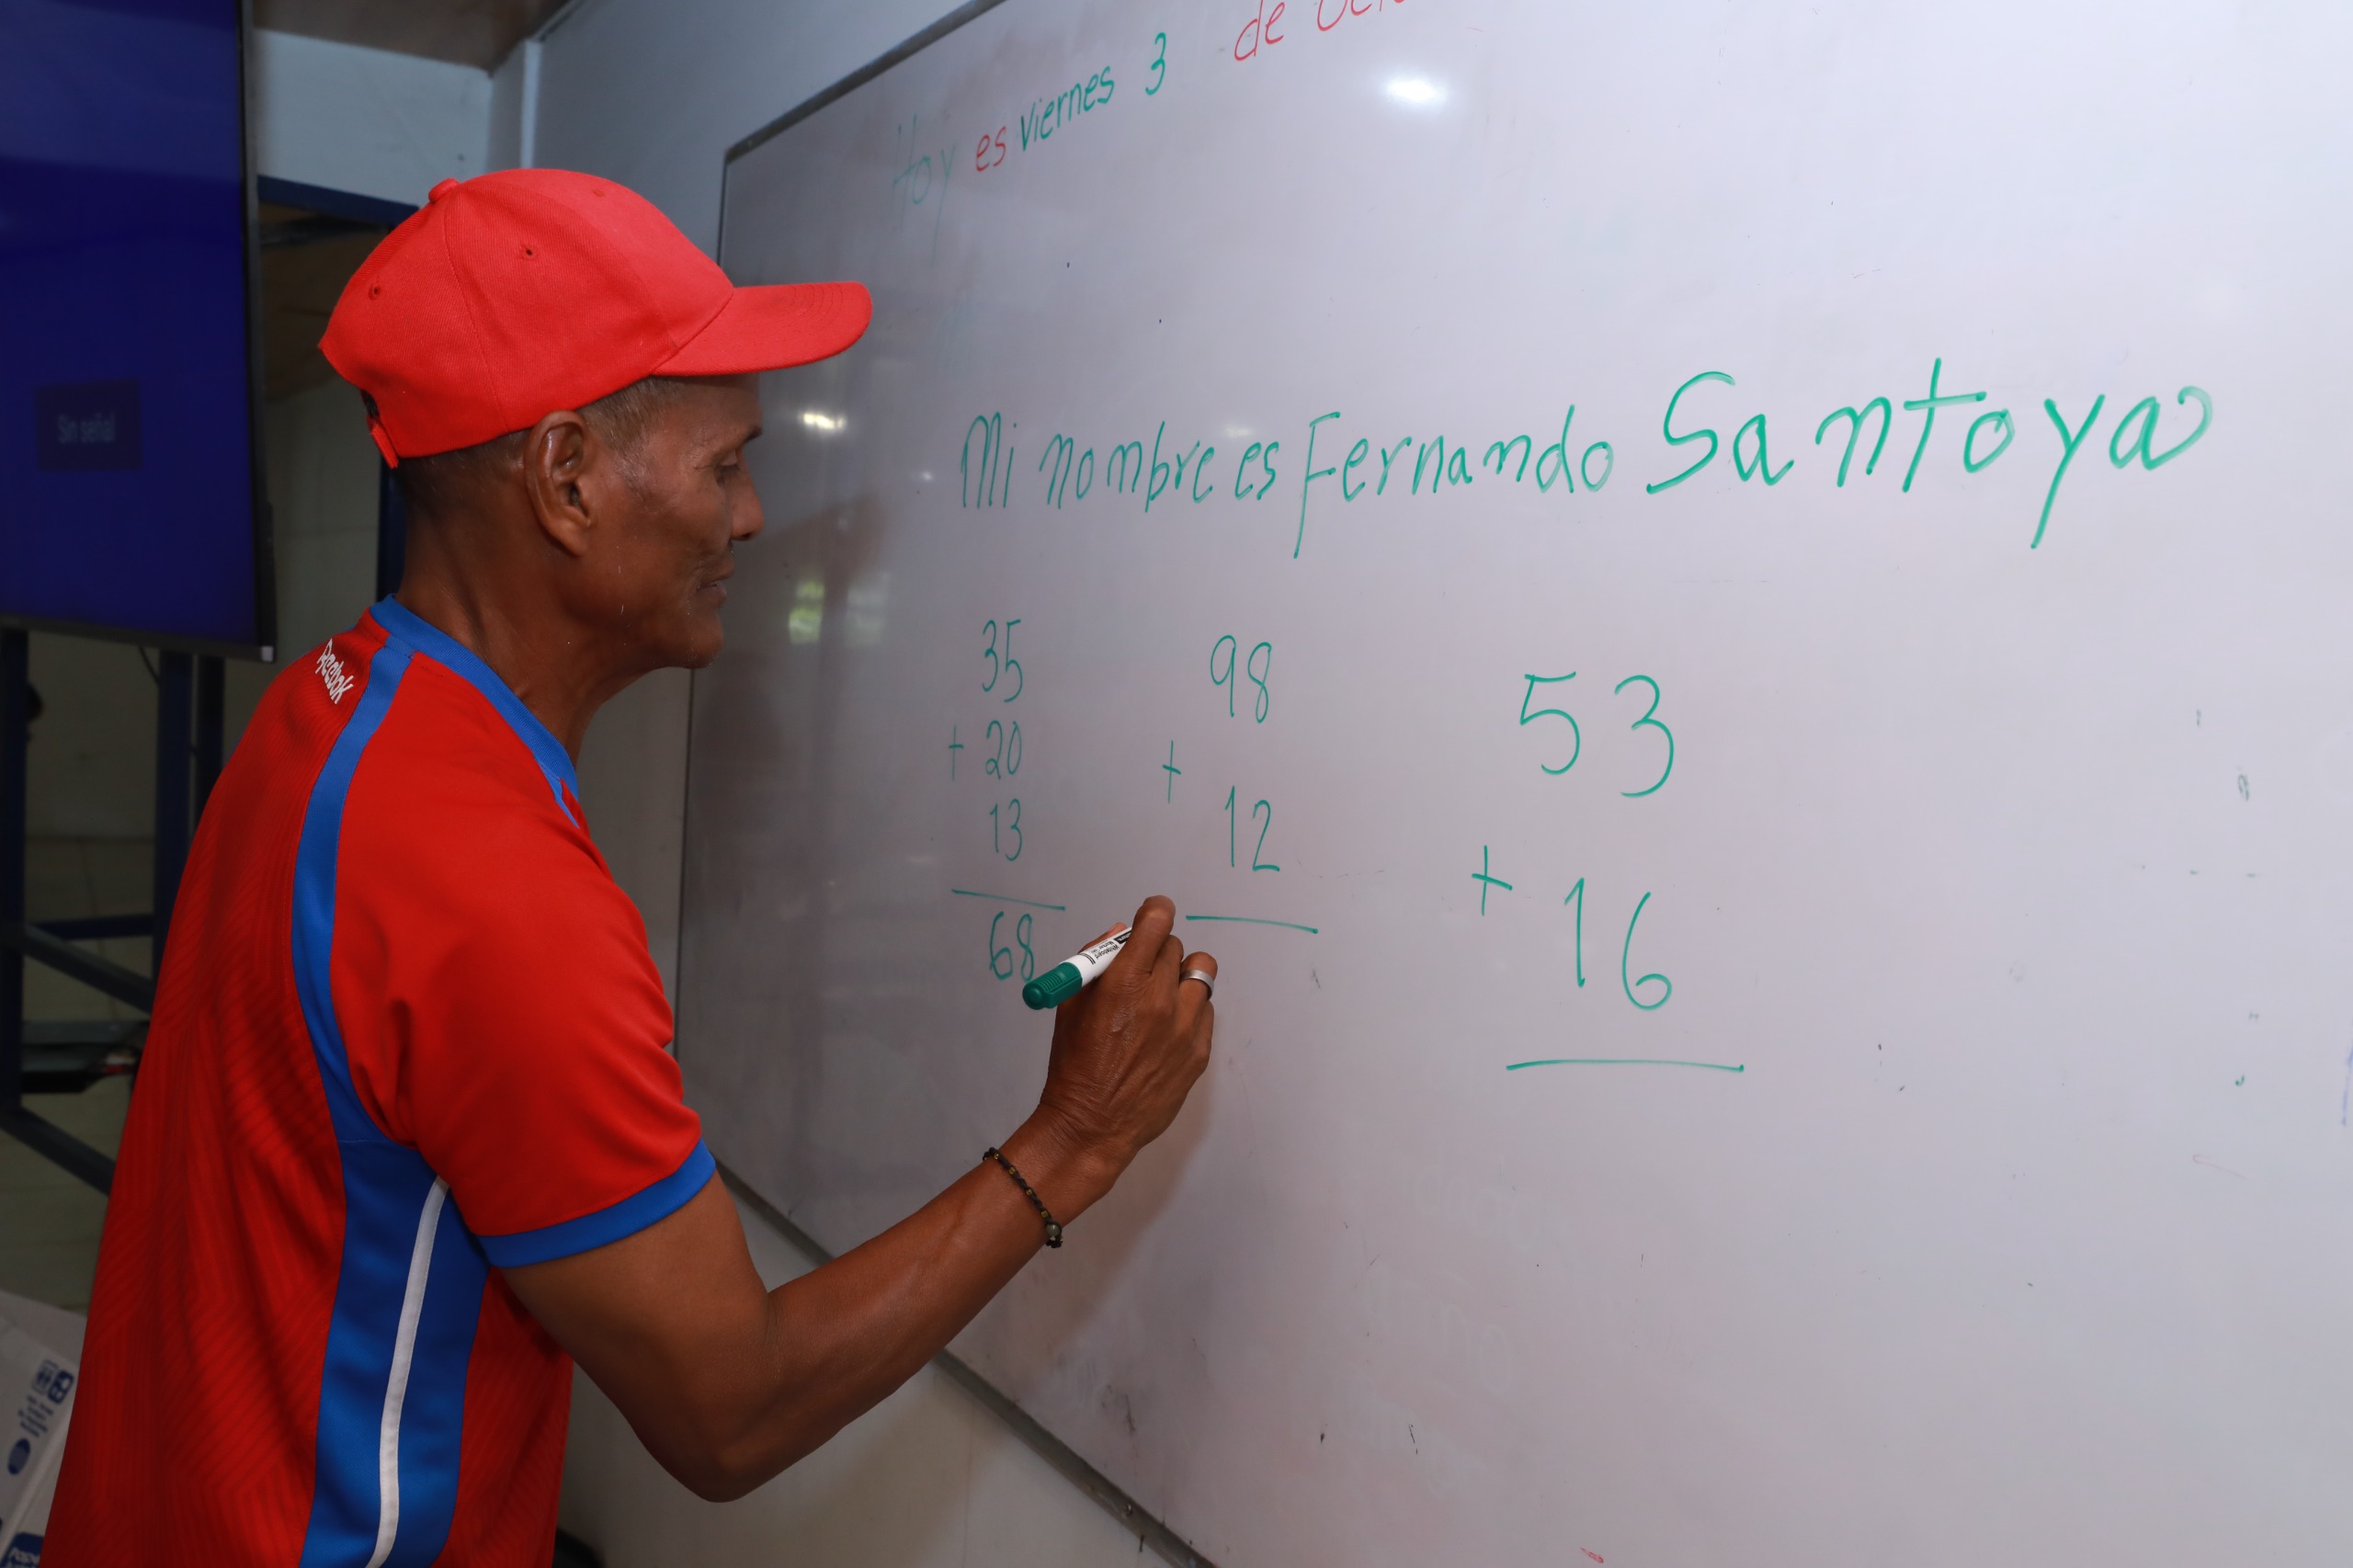 Hoy es viernes 3 de
Mi nombre es Fernando Santoya
35
+ 20
13
68
98
+
12
53
+ 16
Sin señal
Reebok